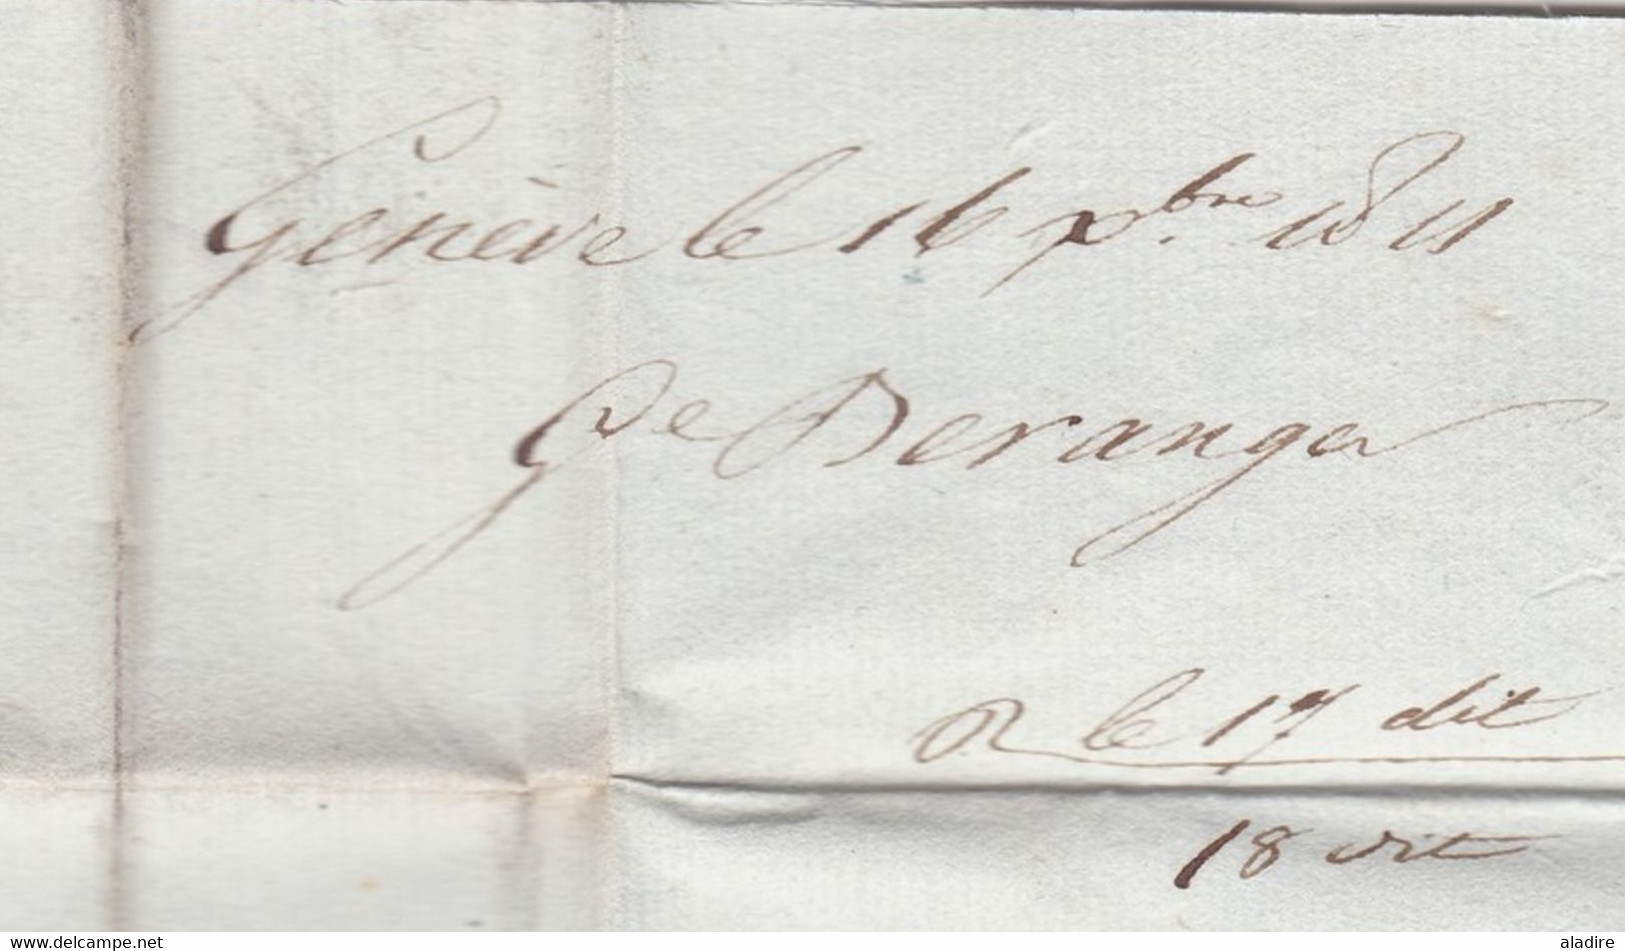 Genève le 16 Xbre 1811
Ge Beranger
R le 17 dit
18 dit
www.delcampe.net
aladire